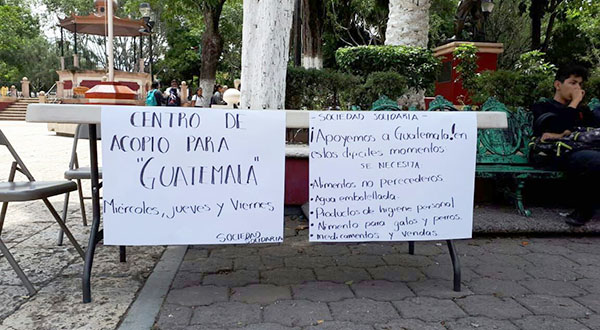 CENTRO DE
ACOPIO PARA
"GUATEMALA"
Miércoles, jueves y Viernes
SOCIEDAD SOLIDARIA
- SOCIEDAD SOLIDARIA -
¡Apoyemos a Guatemala! en
estos dificiles momentos
SE NECESITA
• Alimentos no perecederos
• Agua embotellada
• Productos de higiene personal
• Alimento para gatos y perros.
• Medicamentos y vendas